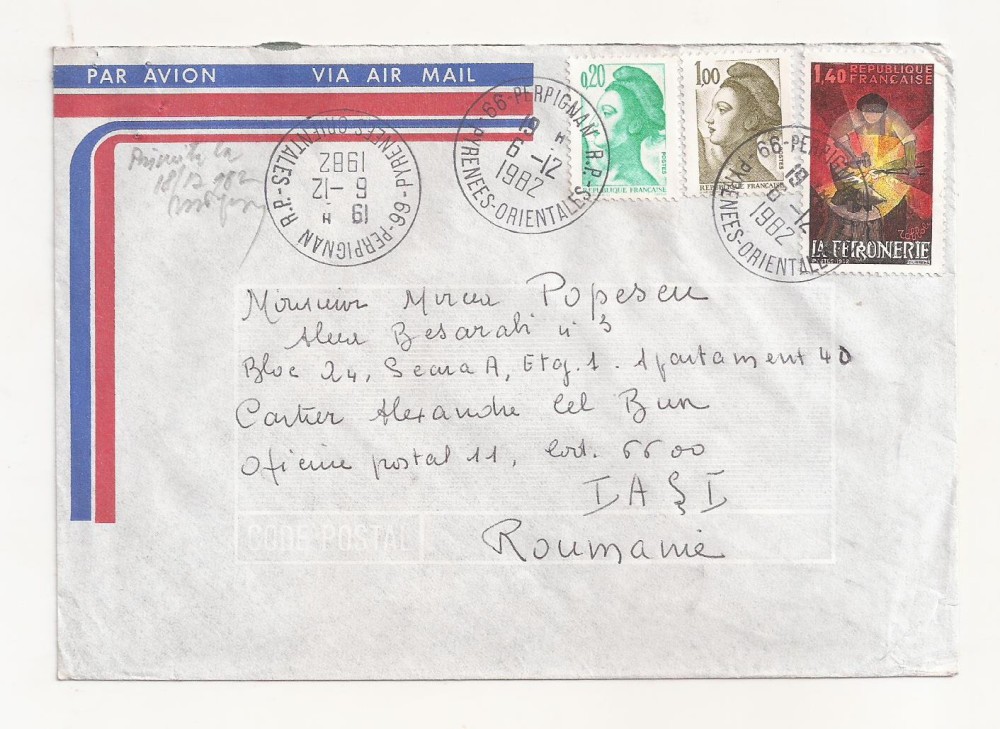 PAR AVION VIA AIR MAIL
0,20
POSTES
RÉPUBLIQUE FRANÇAISE
1,00
POSTES
REPUBLIQUE FRANÇAISE
1,40 REPUBLIQUE
FRANÇAISE
LA FERRONERIE
66-PERPIGNAN R.P.
19 H
6-12
1982
-PYRENEES-ORIENTALES-
66-PERPIGNAN R.P.
19 H
6-12
1982
-PYRENEES-ORIENTALES-
66-PERPIGNAN
19
6-12
1982
PYRENEES-ORIENTALES
la
18/12 982
Monsieur Mircea Popescu
Aleea Besarabi n° 3
Bloc 24, Scara A, Etaj. 1. Apartament 40
Cartier Alexandre cel Bun
Oficiul postal 11, Cod. 6600
IAȘI
Roumanie
CODE POSTAL